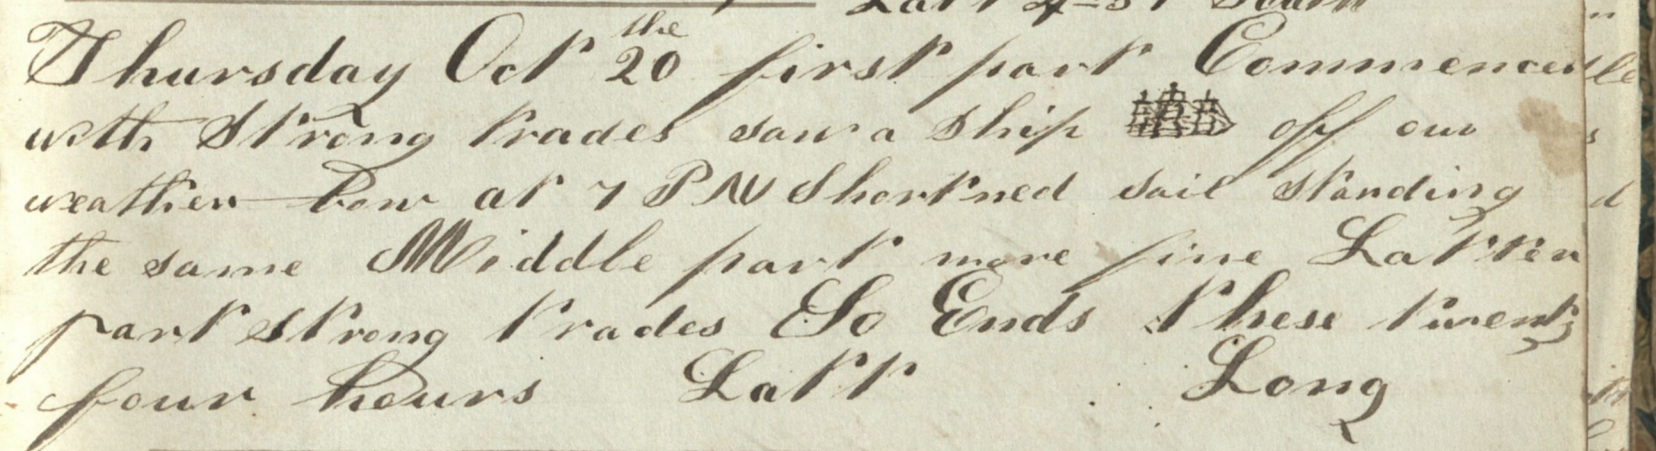 Latt 4=51 South
Thursday Oct 20 the first part Commenced
with Strong trades saw a Ship off our
weather bow at 7 PM Shortned sail standing
the same Middle part more fine Latter
part strong trades So Ends these twenty
four hours Latt Long